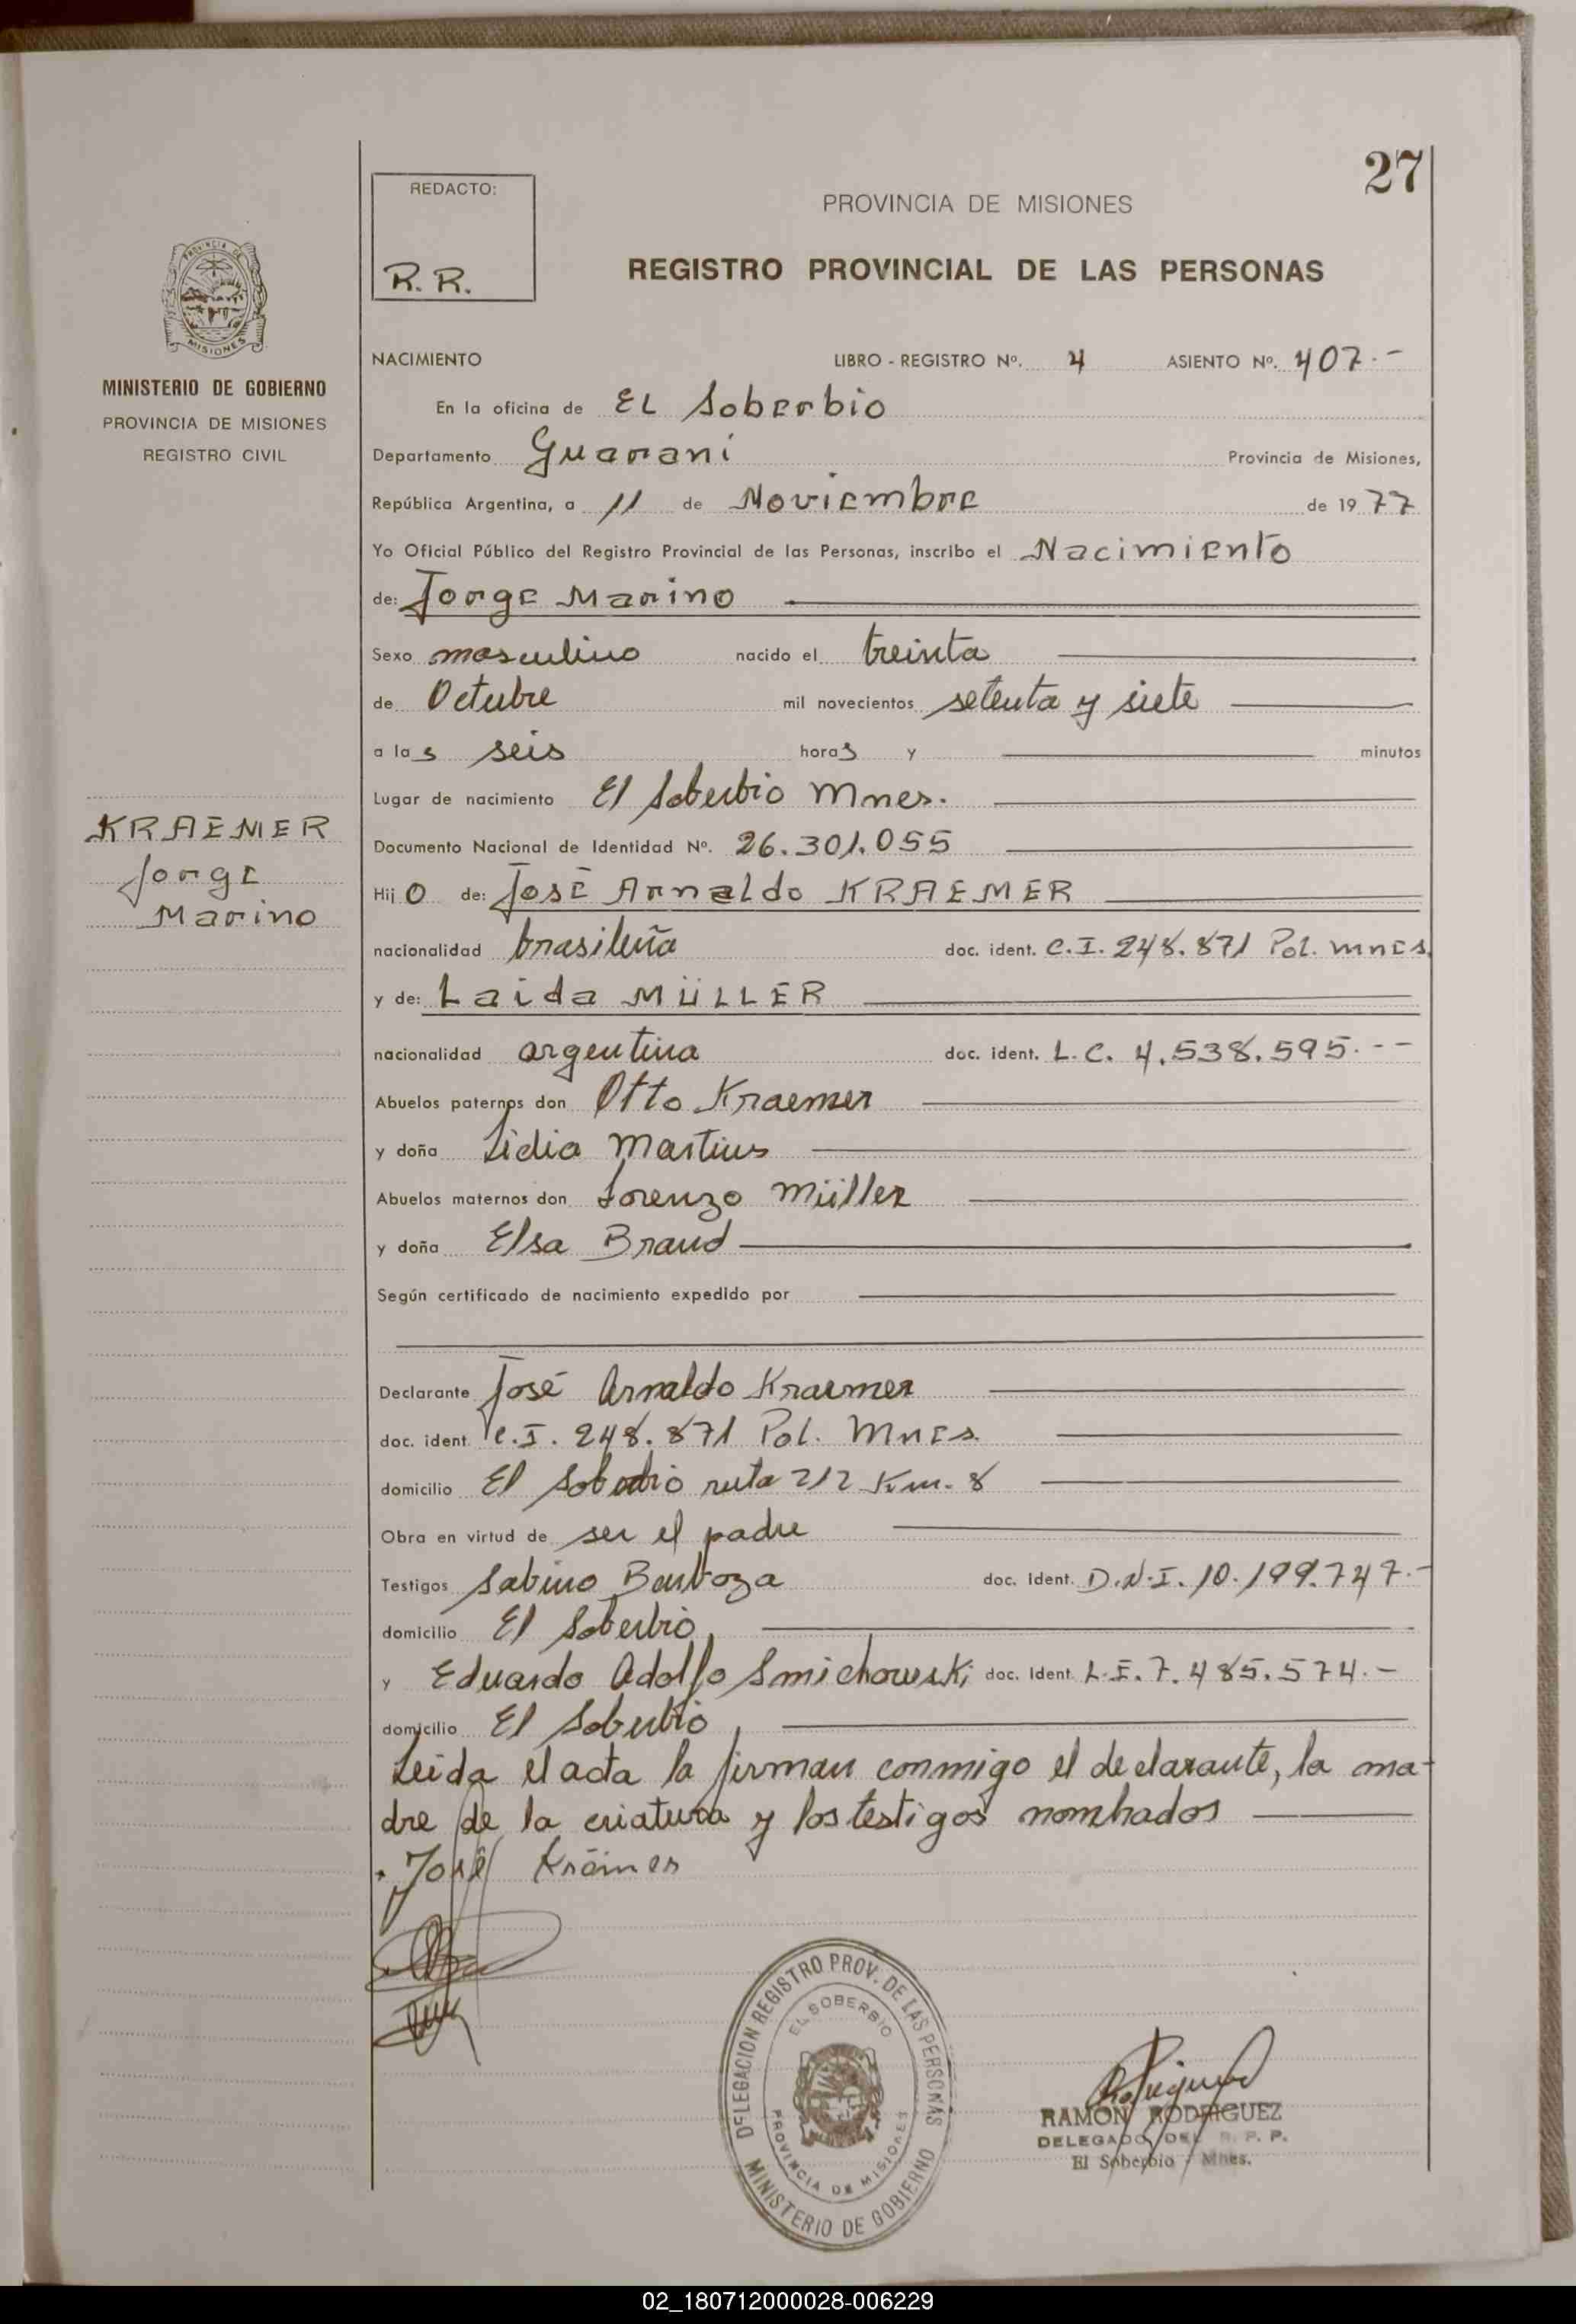 27
REDACTO:
R. R.
PROVINCIA DE MISIONES
REGISTRO PROVINCIAL DE LAS PERSONAS
PROVINCIA DE
MISIONES
MINISTERIO DE GOBIERNO
PROVINCIA DE MISIONES
REGISTRO CIVIL
NACIMIENTO LIBRO - REGISTRO Nº. 4 ASIENTO Nº. 407.-
En la oficina de EL Soberbio
Departamento Guaraní Provincia de Misiones,
República Argentina, a 11 de Noviembre de 1977
Yo Oficial Público del Registro Provincial de las Personas, inscribo el Nacimiento
de: Jorge Marino
Sexo masculino nacido el treinta
de Octubre mil novecientos setenta y siete
a las seis horas y minutos
Lugar de nacimiento El Soberbio Mnes.
KRAEMER
Jorge
Marino
Documento Nacional de Identidad Nº. 26.301.055
Hijo de: José Arnaldo KRAEMER
nacionalidad brasileña doc. ident. C.I. 248.871 Pol. Mnes.
y de: Laida MÜLLER
nacionalidad argentina doc. ident. L.C. 4.538.595.--
Abuelos paternos don Otto Kraemer
y doña Lidia Martins
Abuelos maternos don Lorenzo Müller
y doña Elsa Braud
Según certificado de nacimiento expedido por
Declarante José Arnaldo Kraemer
doc. ident. C.I. 248.871 Pol. Mnes.
domicilio El Soberbio ruta 212 Km. 8
Obra en virtud de ser el padre
Testigos Sabino Barboza doc. ident. D.N.I. 10.199.747.-
domicilio El Soberbio
y Eduardo Adolfo Smichowski doc. Ident. L.E. 7.485.574.-
domicilio El Soberbio
Leida el acta la firman conmigo el declarante, la ma-
dre de la criatura y los testigos nombrados
José Krämer
DELEGACION REGISTRO PROV. DE LAS PERSONAS
EL SOBERBIO
PROVINCIA DE MISIONES
MINISTERIO DE GOBIERNO
RAMON RODRIGUEZ
DELEGADO DEL R. P. P.
El Soberbio - Mnes.
02_180712000028-006229